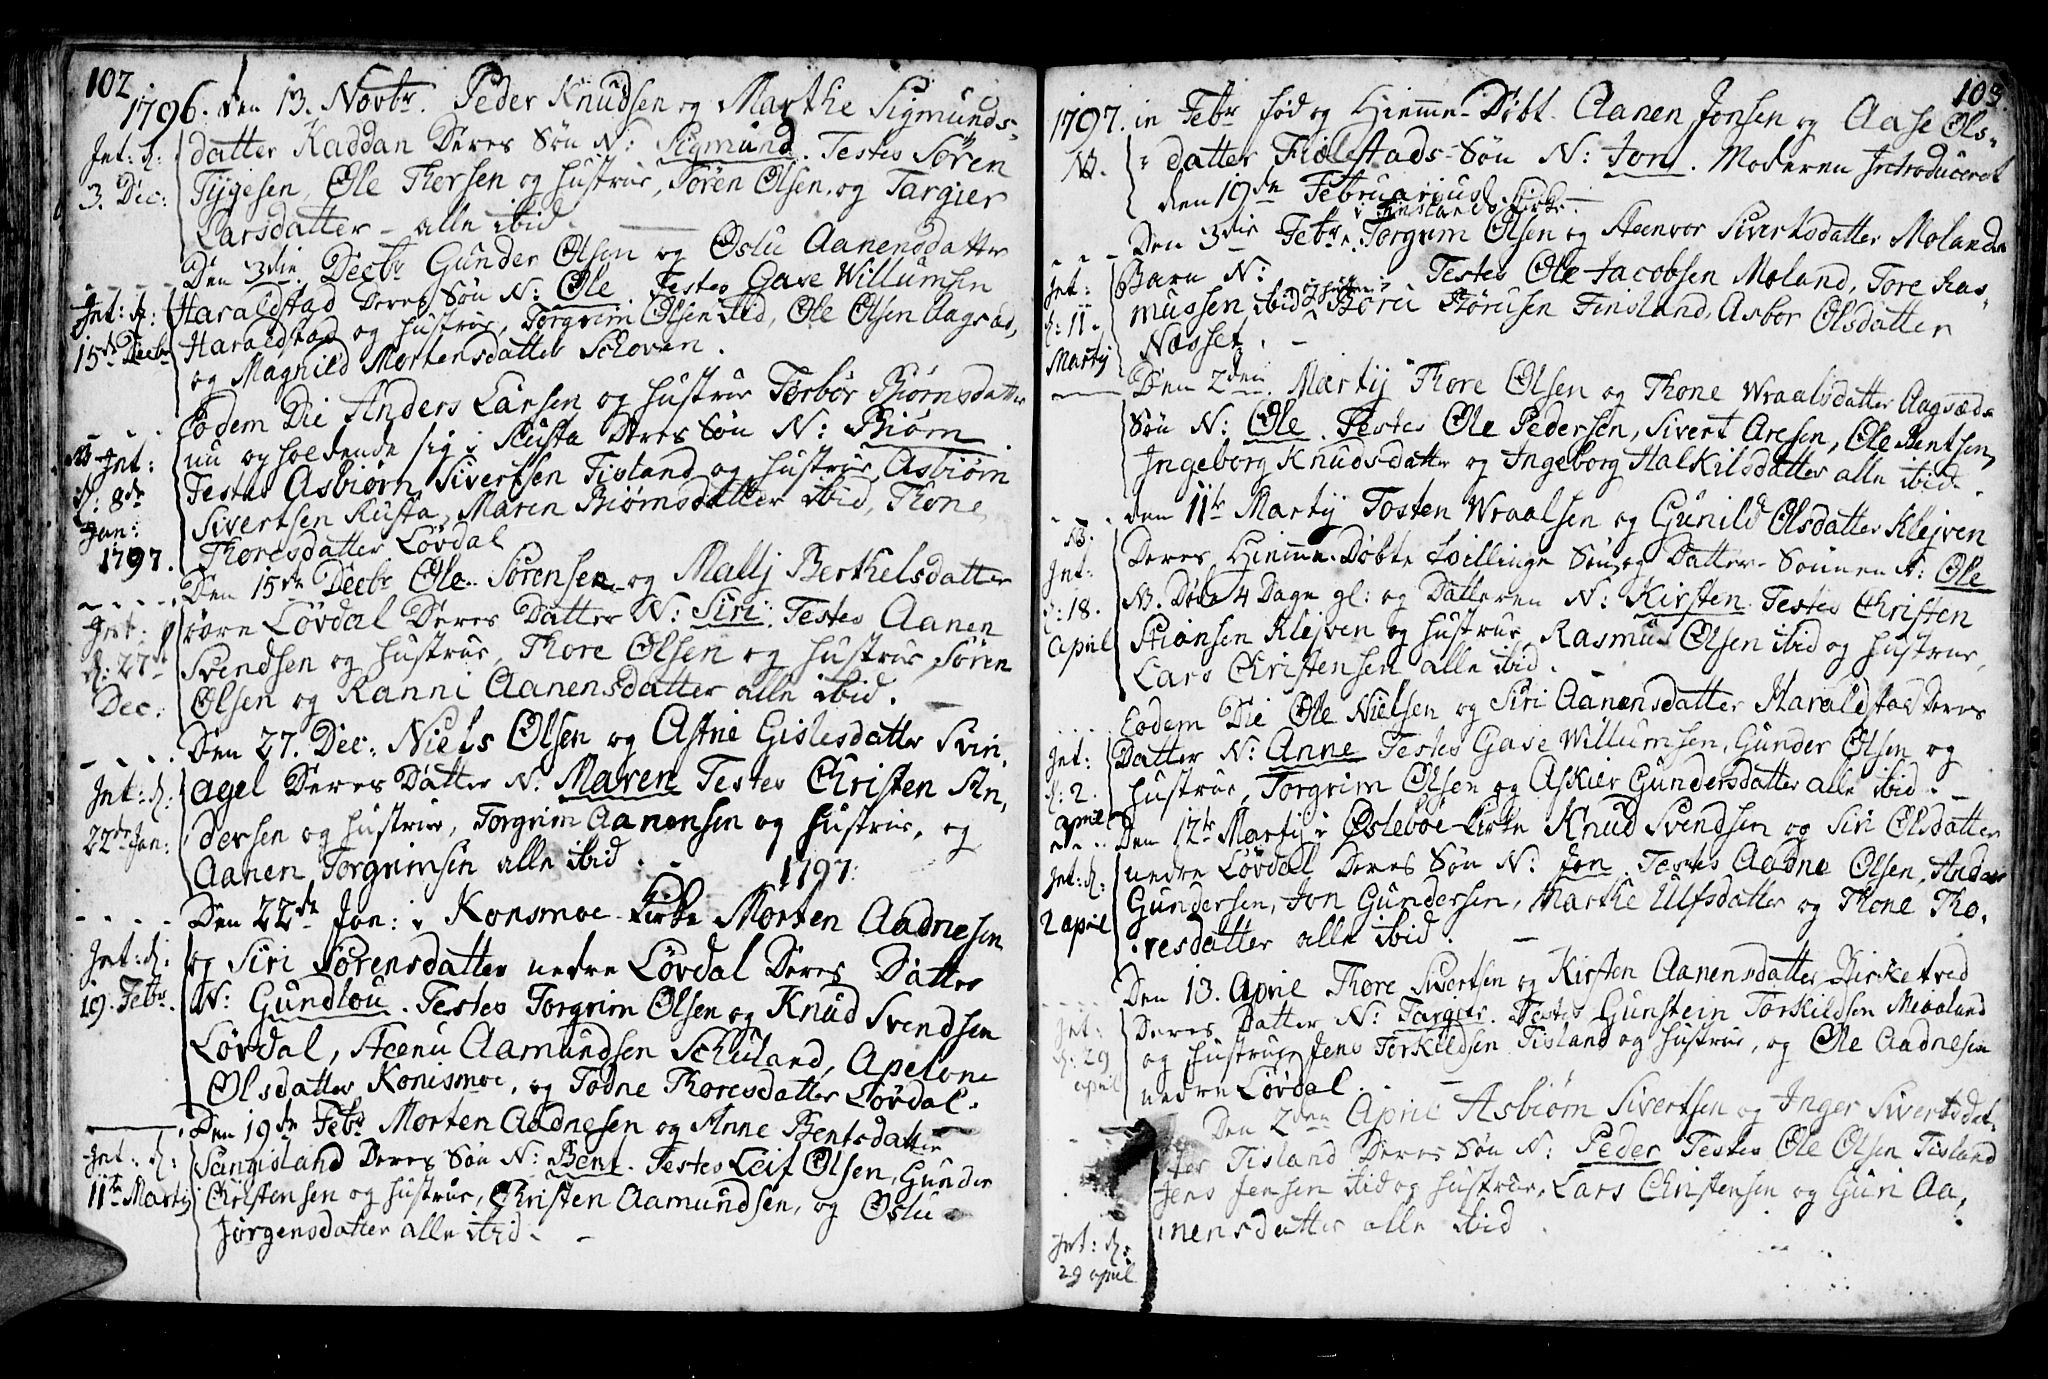 102
1796. den 13. Novbr. Peder Knudsen og Marthe Sigmunds-
Int: d: datter Haddan Deres Søn N: Sigmund. Testes Søren
3. Dec: Tygesen, Ole Thorsen og hustrue, Søren Olsen, og Targier
Larsdatter - alle ibid.
Den 3die Decbr Gunder Olsen og Oslu Aanensdatter
Int: d: Haraldstad Deres Søn N: Ole Testes Gase Willumsen
15de Decbr Haraldstad og hustrue, Torgrim Olsen ibid, Ole Olsen Aagsæd,
og Magnild Mortensdatter Schoven.
Eodem Die Anders Larsen og hustrue Torbor Biørnsdatter
NB Int: nu opholdende sig i Rusta Deres Søn N: Biørn.
d: 8de Testes Asbiørn Sivertsen Tisland og hustrue, Asbiørn
Jan: Sivertsen Rusta, Maren Biørnsdatter ibid, Thone
1797. Thoresdatter Løvdal
Den 15de Decbr Ole Sørensen og Mallj Berthelsdatter
Int: øvre Løvdal Deres Datter N: Siri. Testes Aanen
d: 27de Svendsen og hustrue, Thore Olsen og hustrue Søren
Dec: Olsen og Ranni Aanensdatter alle ibid.
Den 27. Dec: Niels Olsen og Astrie Gislesdatter Svin-
Int: d: agel Deres Datter N. Maren Testes Christen An-
22de Jan: dersen og hustrue, Torgrim Aanensen og hustrue, og
Aanen Torgrimsen alle ibid.
1797.
Den 22de Jan: i Konsmoe Kirke Morten Aadnesen
Int: d: og Siri Sørensdatter nedre Løvdal Deres Datter
19. Febr. N: Gundlou. Testes Torgrim Olsen og Knud Svendsen
Løvdal, Steenu Aamundsen Schuland, Apelone
Olsdatter Konismoe, og Todne Thoresdatter Løvdal.
Den 19de Febr Morten Aadnesen og Anne Bentsdatter
Int: d: Sangisland Deres Søn N: Bent. Testes Leif Olsen, Gunder
11te Martij Christensen og hustrue, Christen Aamundsen, og Oslu
Jørgensdatter alle ibid.
103.
1797. in Febr fød og Hiemme-Døbt. Aanen Jonsen og Aase Ols-
NB. datter Fiølstads Søn N: Jon. Moderen Introduceret
den 19de Februarius i Finslands Kirke.
Den 3die Febr. Torgrim Olsen og Steenvor Sivertsdatter Molands
Int: Barn N: Testes Ole Jacobsen Moland, Tore Ras-
d: 11. mussen ibid og hustrue, Børu Størusen Finsland, Asbor Olsdatter
Martij Næsset.
Den 2den Martij Thore Olsen og Thone Wraalsdatter Aagsæds
Søn N: Ole. Testes Ole Pedersen, Sivert Aresen, Ole Bentsen,
Ingeborg Knudsdatter og Ingeborg Halkilsdatter alle ibid.
den 11te Martij Tosten Wraalsen og Gunild Olsdatter Klejven
NB. Int: Deres Hiemme-Døbte Tvillinge Søn og Datter. Sønnen N: Ole
d: 18. NB. Døbt 4 Dage gl: og Datteren N: Kirsten Testes Christen
april Stiønsen Klejven og hustrue, Rasmus Olsen ibid og hustrue,
Lars Christensen alle ibid.
Eodem Die Ole Nielsen og Siri Aanensdatter Haraldstad Deres
Int: Datter N: Anne Testes Gase Willumsen, Gunder Olsen og
d: 2. hustrue, Torgrim Olsen og Askier Gundersdatter alle ibid.
april Den 12te Martij i Øslebøe Kirke Knud Svendsen og Siri Olsdatter
Int: d: nedre Løvdal Deres Søn N: Jon. Testes Aadne Olsen, Anders
2 april Gundersen, Jon Gundersen, Marthe Ulfsdatter og Thone Tho-
resdatter alle ibid.
Den 13. April Thore Sivertsen og Kirsten Aanensdatter Birketved
Int: Deres Datter N: Targier. Testes Gunstein Torkildsen Meeland
d: 29 og hustrue, Jens Torkildsen Tisland og hustrue, og Ole Aadnesen
april nedre Løvdal.
Den 2den April Asbiørn Sivertsen og Inger Sivertsdat-
ter Tisland Deres Søn N: Peder Testes Ole Olsen Tisland
Jens Jensen ibid og hustrue, Lars Christensen og Guri Aa-
Int: d: nensdatter alle ibid.
29 april